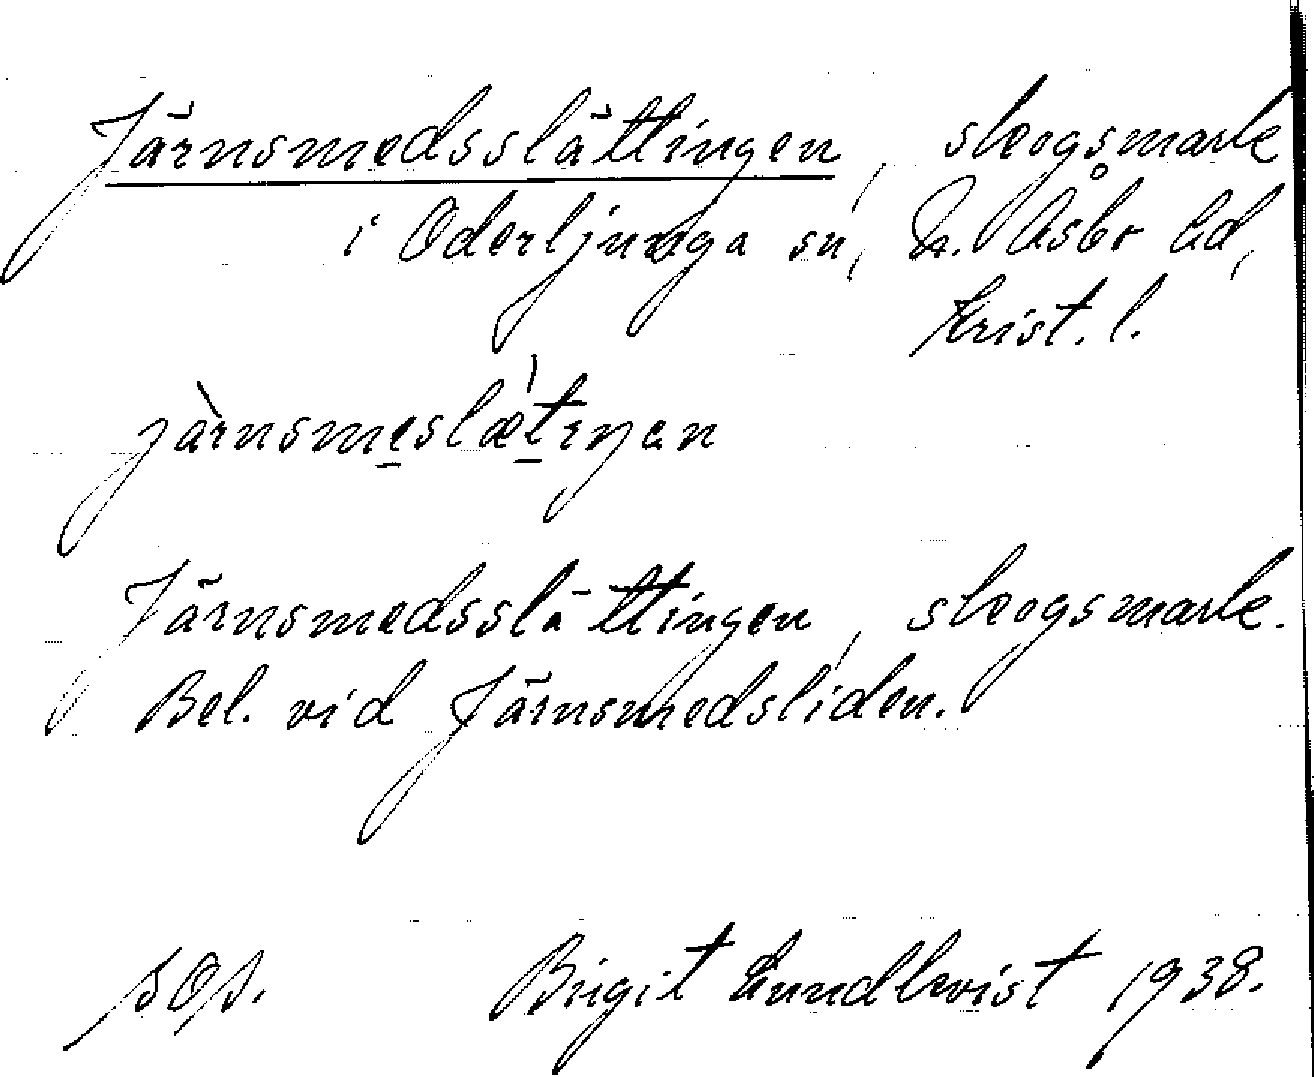 Järnsmedsslättingen, skogsmark
i Oderljunga sn, N. Åsbo hd,
Krist. l.
jà̀rnsmeslǽtıŋen
Järnsmedsslättingen, skogsmark.
Bel. vid Järnsmedsliden.
Birgit Lundkvist 1938.